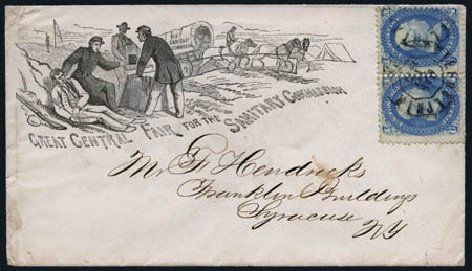 GREAT CENTRAL FAIR FOR THE SANITARY COMMISSION
Mr F Hendricks
Franklin Buildings
Syracuse
NY